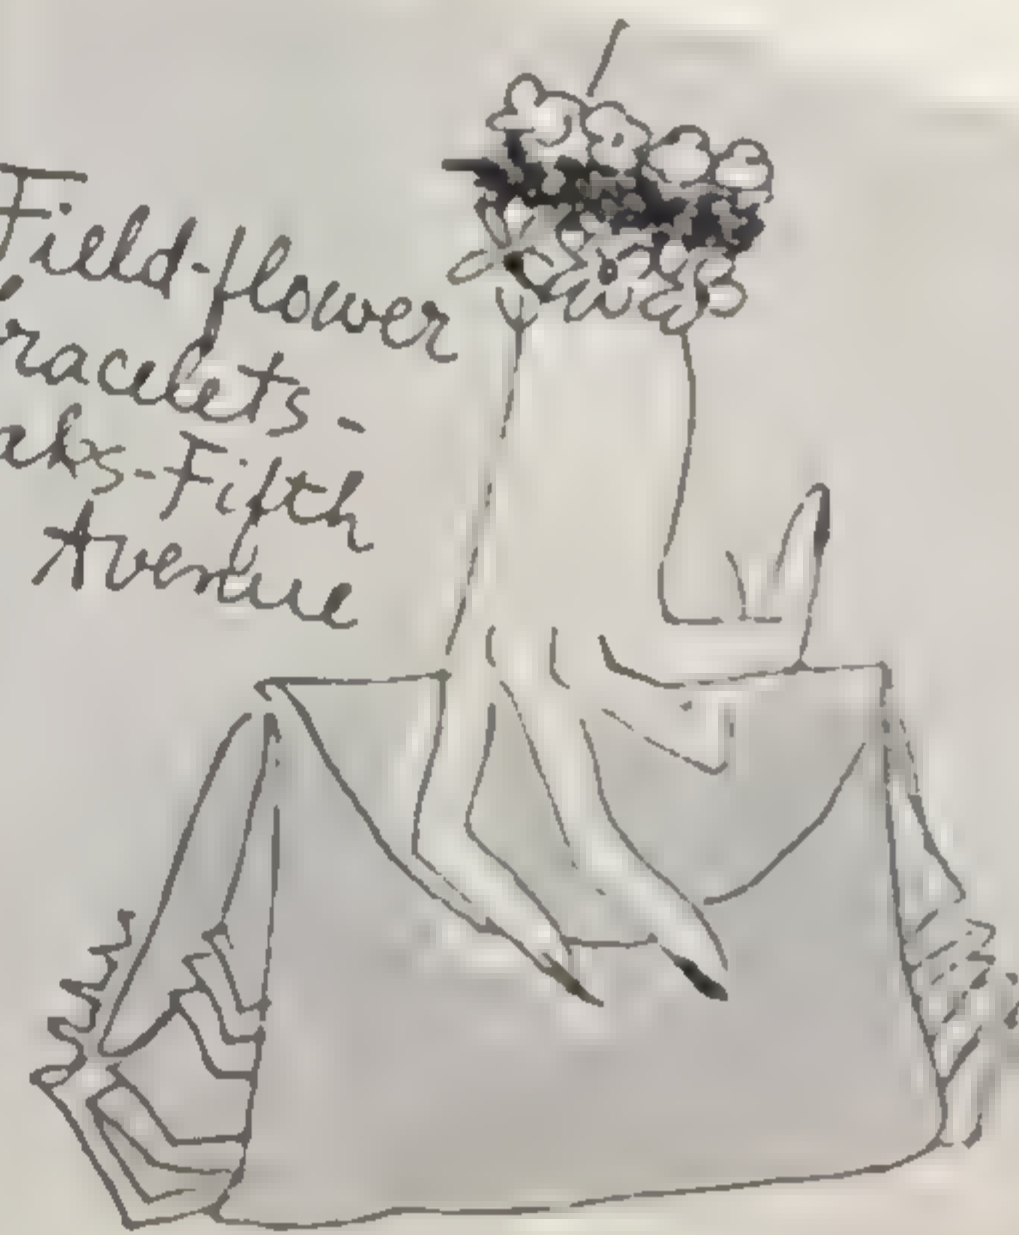 Field-flower
racelets-
aks-Fifth
Avenue